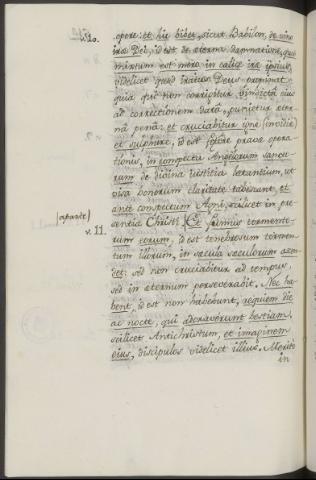 v. 10. opere: et hic bibet, sicut Babilon, de vino
irae Dei, id est de aeterna damnatione, quod
mixtum est mero in calice irae ipsius,
videlicet quod iratus Deus propinat
quia qui non corrigitur vindicta eius
ad correctionem data, punietur aeter-
na pena: et cruciabitur igne (invidiae)
et sulphure, id est fetore pravae opera-
tionis, in conspectu Angelorum sancto-
rum de divina iustitia laetantium, ut
visa bonorum claritate tabescant, et
ante conspectum Agni, scilicet in pre-
sentia Christi. Et fumus tormento-
(aparte)
v. 11. rum eorum, id est tenebrosum tormen-
tum illorum, in saecula saeculorum ascen-
det: id non cruciabitur ad tempus,
sed in aeternum perseverabit. Nec ha-
bent, id est non habebunt, requiem die
ac nocte, qui adoraverunt bestiam,
scilicet Antichristum, et imaginem
eius, discipulos videlicet illius. Merito
in